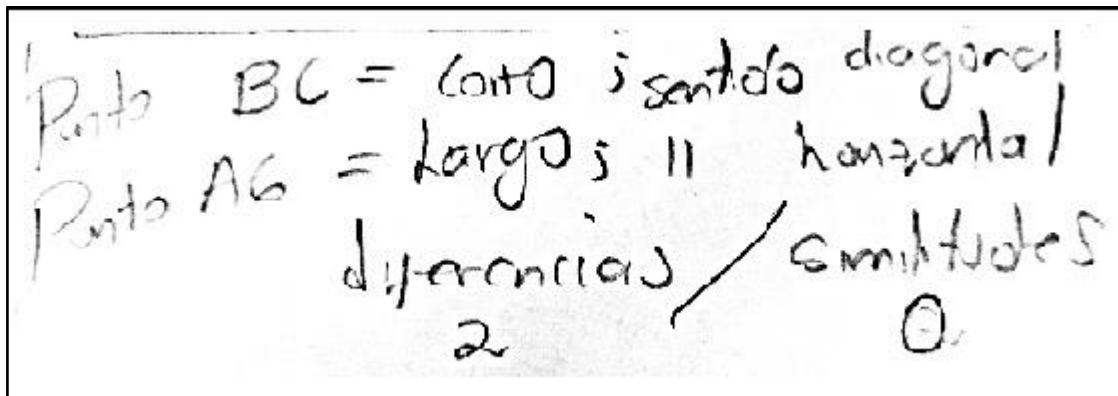 Punto BC = corto ; sentido diagonal
Punto AG = Largo ; 11 horizontal
diferencias / similitudes
2 0